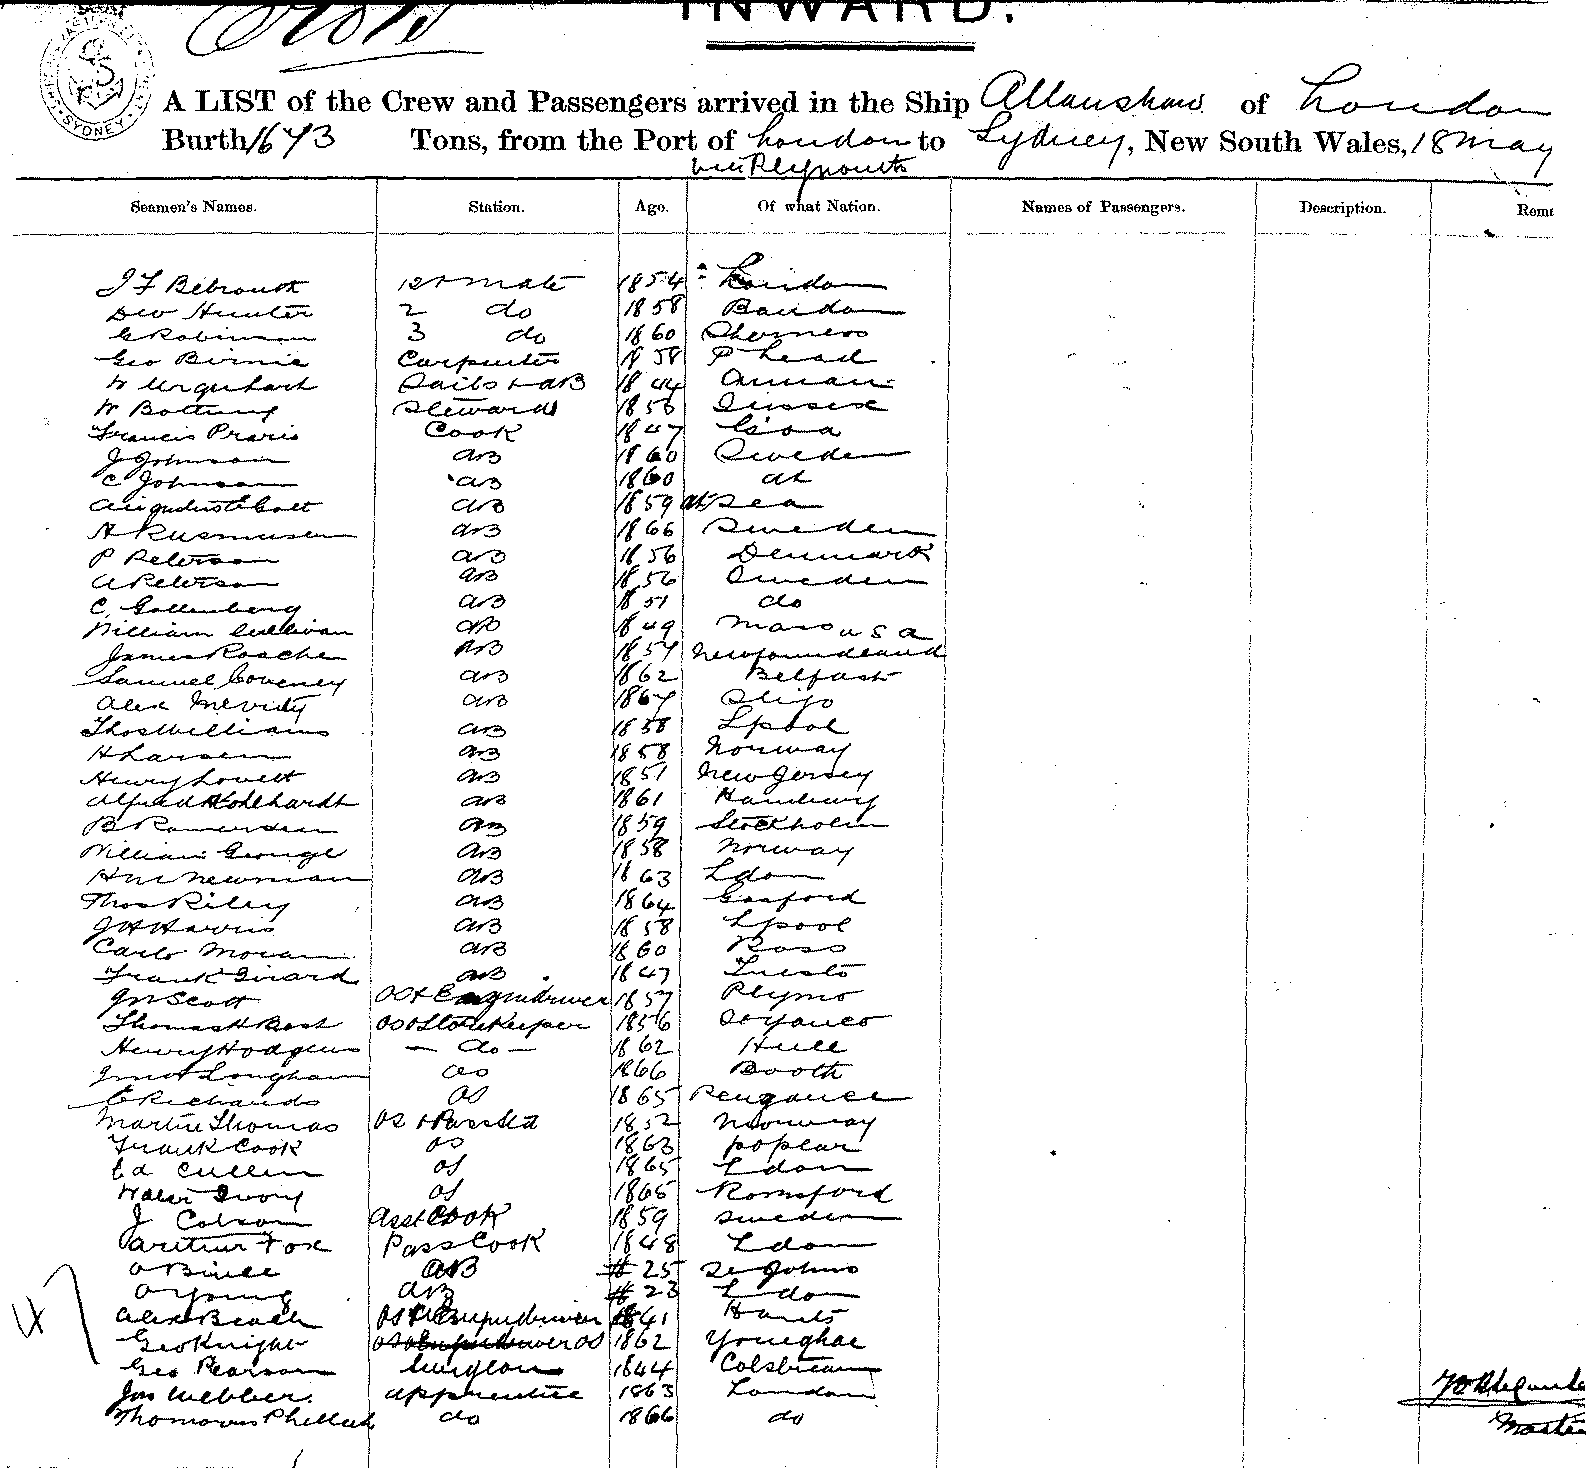 INWARD.
SYDNEY
A LIST of the Crew and Passengers arrived in the Ship Allanshaw of London
Burth 1673 Tons, from the Port of London to Sydney, New South Wales, 18 May
via Plymouth
Seamen's Names. Station. Age. Of what Nation. Names of Passengers. Description.
1st mate 1854 London
Hunter 2 do 1858 Bandon
C Robinson 3 do 1860 Sheerness
Geo Birnie Carpenter 1858 P head
W Urquhart Sails + AB 1844 Annan
W Botting Steward 1856 Sussex
Francis Cook 1847 Goa
J Johnson AB 1860 Sweden
C Johnson AB 1860 at
AB 1859 at sea
A Rasmusen AB 1866 Sweden
P Peterson AB 1856 Denmark
A Peterson AB 1856 Sweden
C. Gollenberg AB 1851 do
William Sullivan AB 1849 Mass U S A
James Roache AB 1857 Newfoundland
Samuel Coveney AB 1862 Belfast
Alex AB Sligo
Thos Williams AB 1858 Lpool
H Larsen AB 1858 Norway
Henry Lovett AB 1851 New Jersey
Alfred Kohlhardt AB 1861 Hamburg
B AB 1859 Stockholm
William George AB 1858 Norway
H W Newman AB 1863 Ldon
Thos Riley AB 1864 Gosford
J H Harris AB 1858 Lpool
Carlo AB 1860
Frank Girard AB 1847
Jn Scott OS + Enginedriver 1857 Plymo
Thomas H Bast Storekeeper 1856
Henry Hodgens — do — 1862 Hull
Langham 1866 Booth
C Richards OS 1865 Penzance
Martin Thomas OS + 1852 Norway
Frank Cook OS 1863 Poplar
Ed Cullen OS 1865 Ldon
Walter Ivory OS 1865 Romford
J Colson Asst Cook 1859 Sweden
Arthur Fox Pass Cook 1848 Ldon
O AB 25 St Johns
O Young AB 23 Ldon
4
Alex Beach 1841 Hants
Geo Knight OS 1862 Youghal
Geo Pearson Surgeon 1844 Colstream
Jas Webber. apprentice 1863 London
do 1866 do
Master